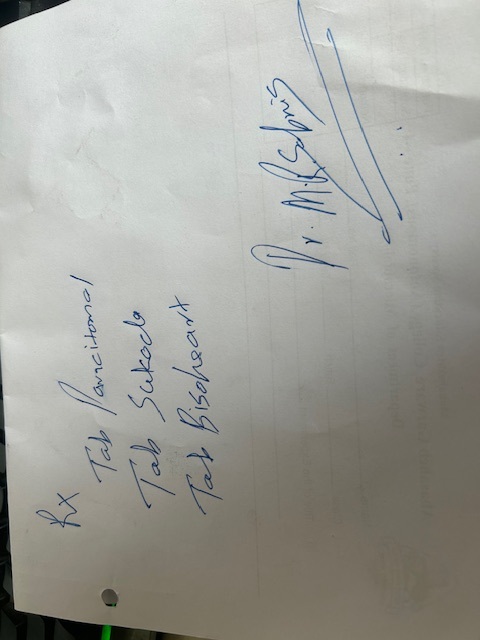 Rx
Tab Parcitomal
Tab Sukode
Tab Bisoheart
Dr. M.R Sabris